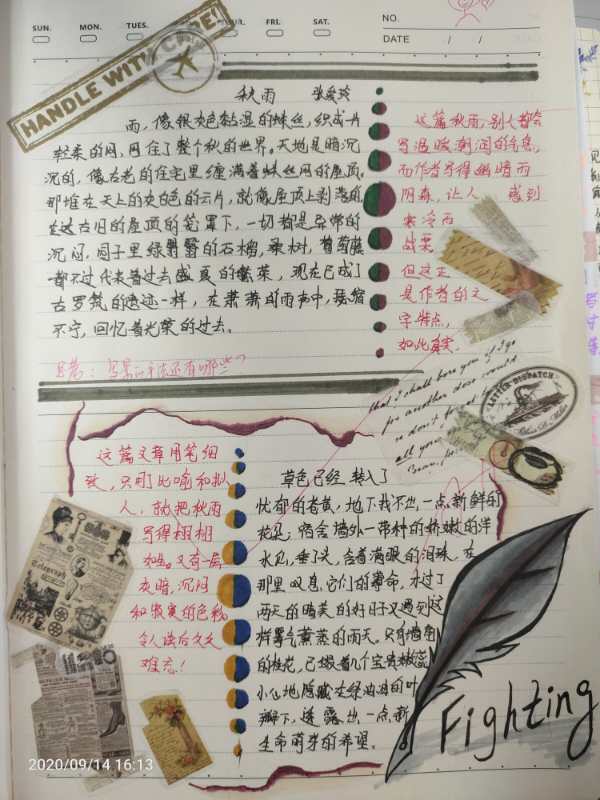 SUN.
MON.
TUES.
FRI.
SAT.
NO.
DATE / /
HANDLE WITH CARE!
秋雨 张爱玲
雨，像银灰色黏湿的蛛丝，织成一片
轻柔的网，网住了整个秋的世界。天地是暗沉
沉的，像古老的住宅里缠满着蛛丝网的屋顶。
那堆在天上的灰白色的云片，就像屋顶上剥落的
在这古旧的屋顶的笼罩下，一切都是异常的
沉闷。园子里绿翳翳的石榴，桑树，葡萄藤
都不过代表着过去盛夏的繁荣，现在已成了
古罗马建筑的遗迹一样，在萧萧的雨声中
不宁，回忆着光荣的过去。
这篇秋雨，别人都会
写温暖、潮润的气息，
而作者写得幽暗而
阴森，让人感到
寒冷而
战栗
但这正
是作者的文
字特点，
如此真实。
思考：写景的手法还有哪些？
that I shall have you if I go
for another dose
LETTER DISPATCH
这篇文章用笔细
致，只用了比喻和拟
人，就把秋雨
写得栩栩
如生。又奇一层
灰暗，沉闷
和寂寞的色彩，
令人读后久久
难忘！
草色已经转入了
忧郁的苍黄，地下找不出一点新鲜的
花朵；宿舍墙外一带种的娇嫩的洋
水仙，垂了头，含着满眼的泪珠，在
那里叹息它们的薄命，才过了
两天的晴美的好日子又遇到这
样霉气薰薰的雨天。只有墙角
的桂花，已缀着几个宝贵的嫩蕊，
小心地隐藏在绿油油的叶
瓣下，透露出一点新
生命萌芽的希望。
Telegraph
Fighting
2020/09/14 16:13